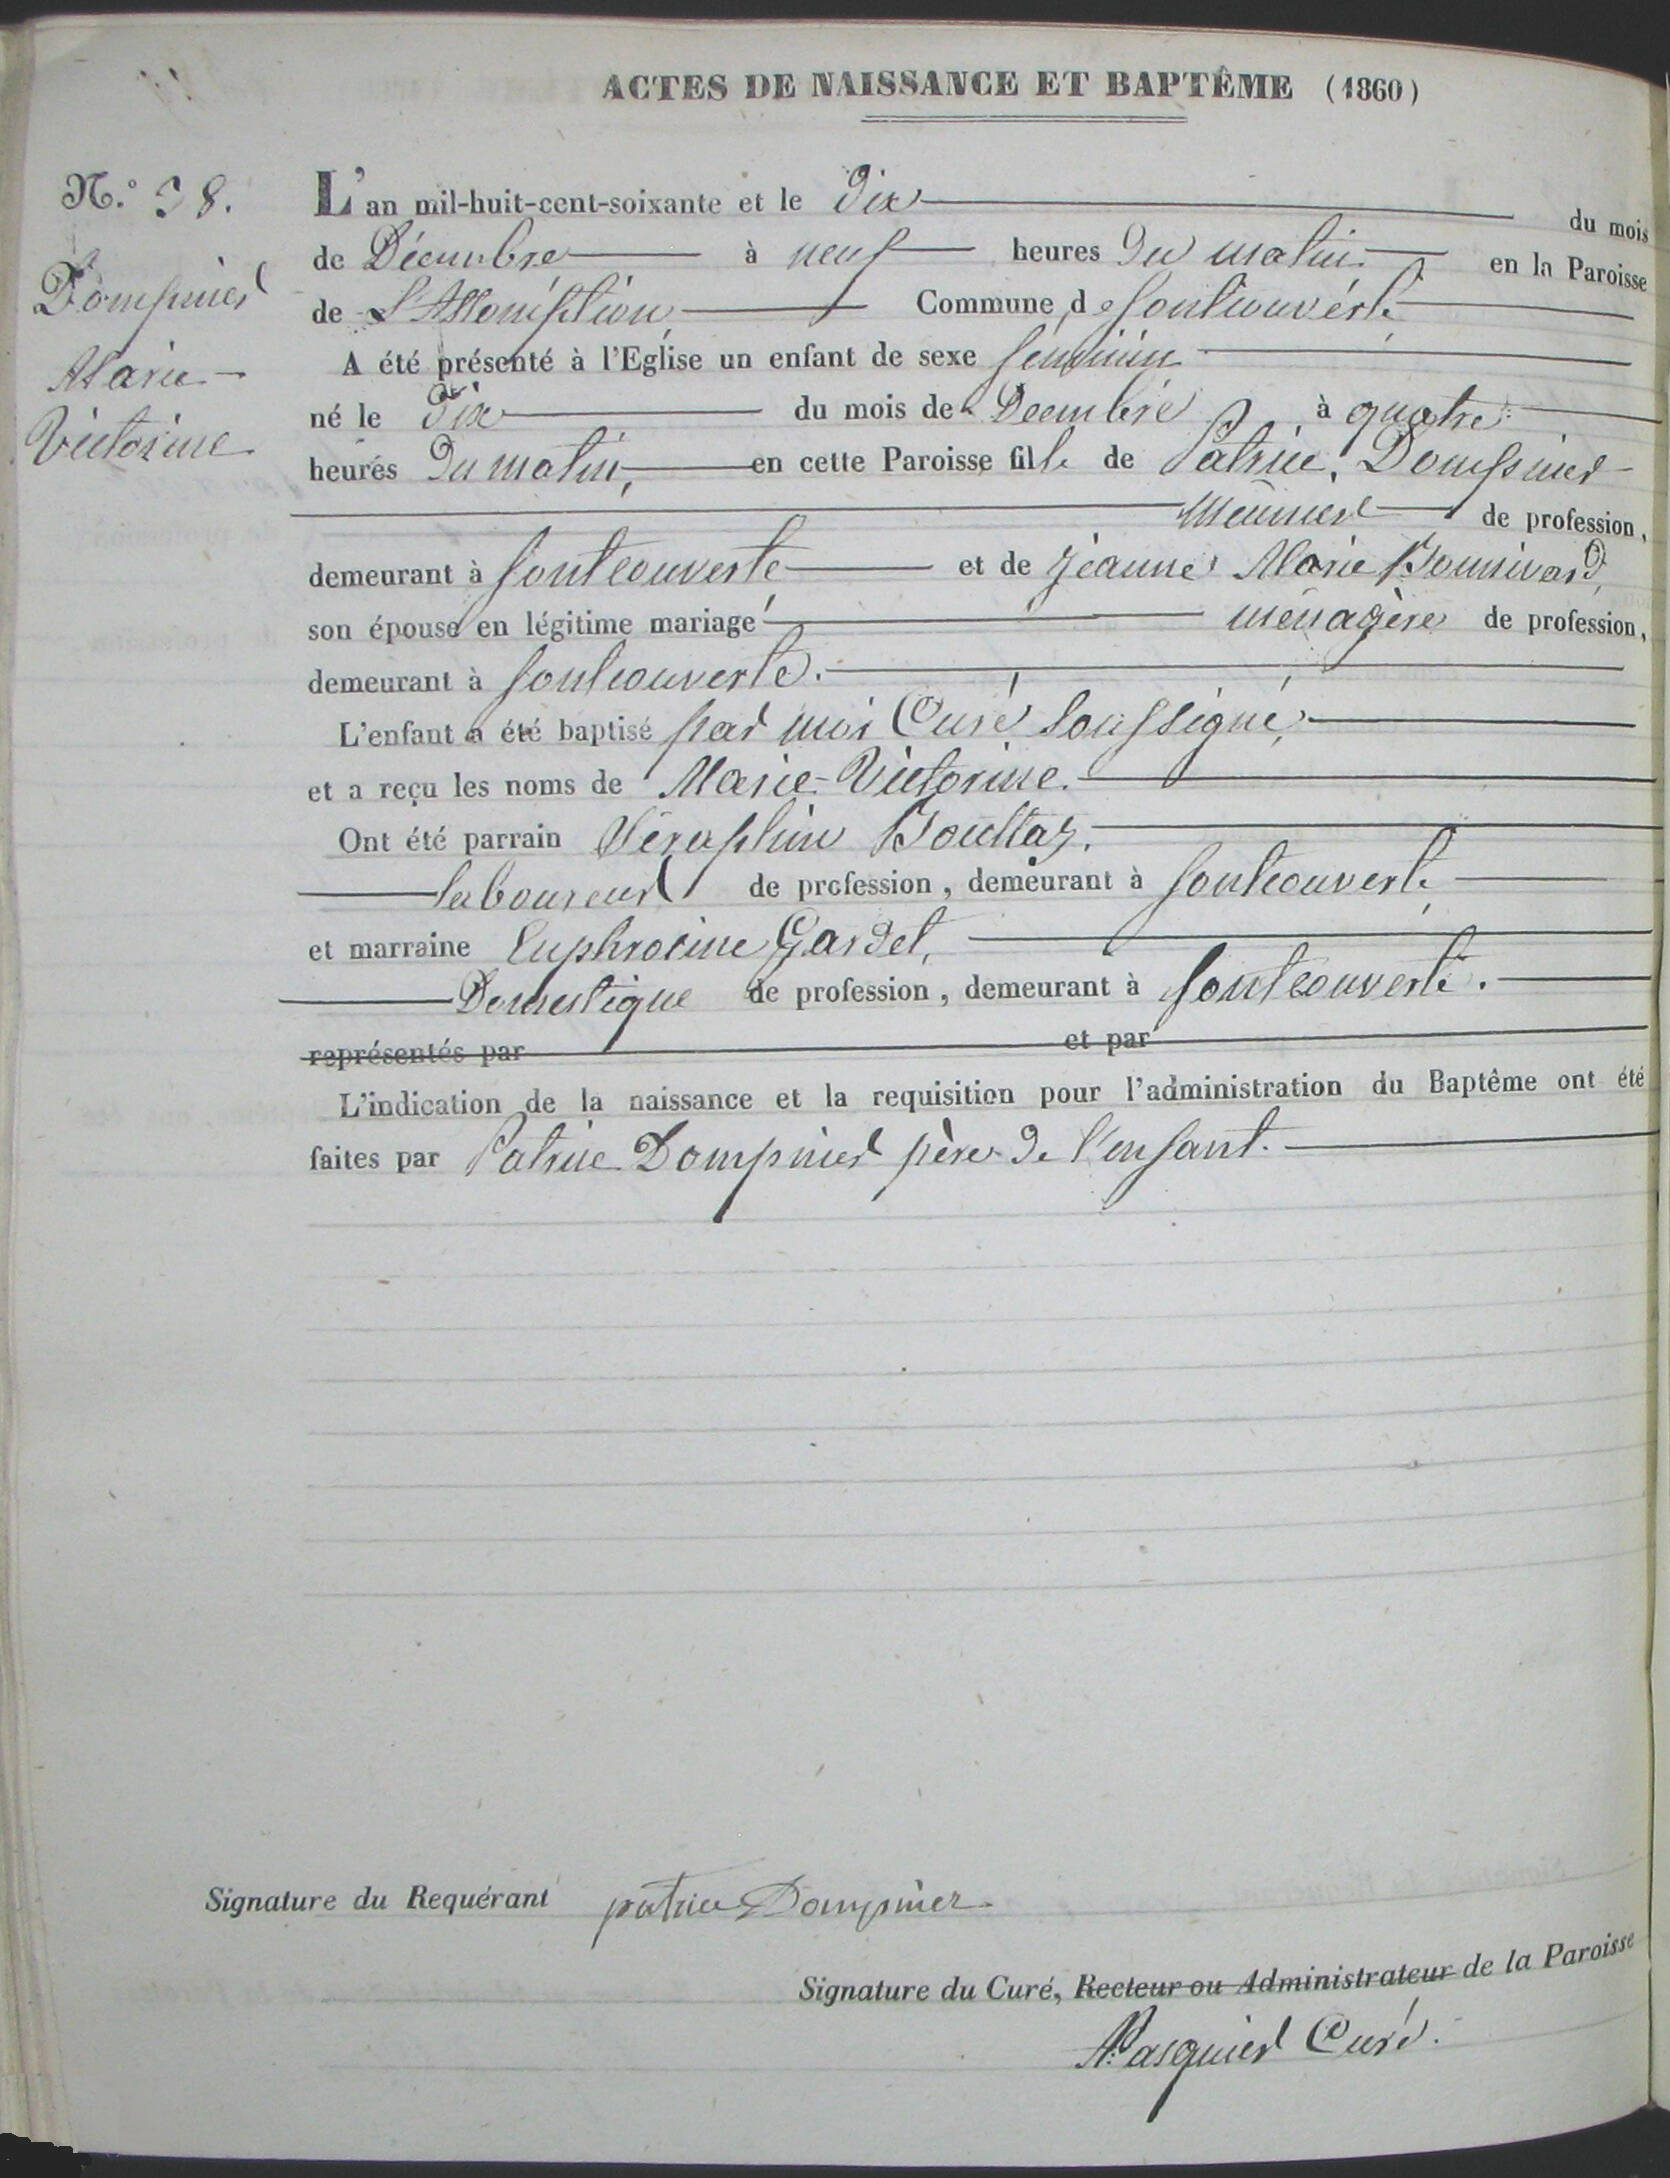 ACTES DE NAISSANCE ET BAPTÊME (1860)
N.° 38.
Dompnier
Marie-
Victorine
L'an mil-huit-cent-soixante et le Dix du mois
de Décembre à neuf heures Du matin. en la Paroisse
de L'Assomption, Commune de fontcouverte
A été présenté à l'Eglise un enfant de sexe féminin
né le Dix du mois de Decembre à quatre
heures Du matin, en cette Paroisse fille de Patrice Dompnier
Meunier de profession,
demeurant à fontcouverte et de Jeanne Marie Bonnivard,
son épouse en légitime mariage ménagère de profession,
demeurant à fontcouverte.
L'enfant a été baptisé par moi Curé soussigné,
et a reçu les noms de Marie-Victorine.
Ont été parrain Séraphin Bouttaz,
laboureur de profession, demeurant à fontcouverte
et marraine Euphrosine Gardet,
Domestique de profession, demeurant à fontcouverte.
représentés par et par
L'indication de la naissance et la requisition pour l'administration du Baptême ont été
faites par Patrice Dompnier père de l'enfant.
Signature du Requérant patrice Dompnier
Signature du Curé, Recteur ou Administrateur de la Paroisse
Pasquier Curé.